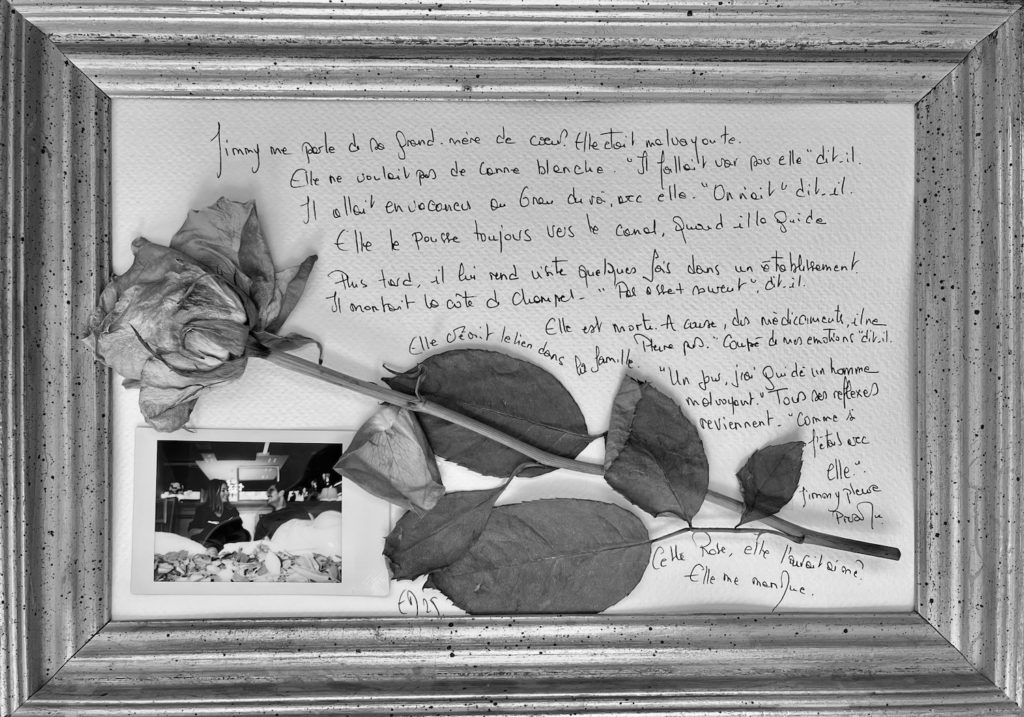 Jimmy me parle de sa grand-mère de cœur. Elle était malvoyante.
Elle ne voulait pas de canne blanche. "Il fallait voir pour elle" dit-il.
Il allait en vacances au Grau du roi, avec elle. "On riait" dit-il.
Elle le pousse toujours vers le canal, quand il la guide
Plus tard, il lui rend visite quelques fois dans un établissement.
Il montait la côte d Champel. "Pas assez souvent", dit-il.
Elle est morte. A cause, des médicaments, il ne
pleure pas. "Coupé de mes émotions" dit-il.
Elle était le lien dans
la famille.
"Un jour, j'ai guidé un homme
malvoyant." Tous ses réflexes
reviennent. "Comme si
j'étais avec
elle".
Jimmy pleure
presque
Cette Rose, elle l'aurait aimé.
Elle me manque.